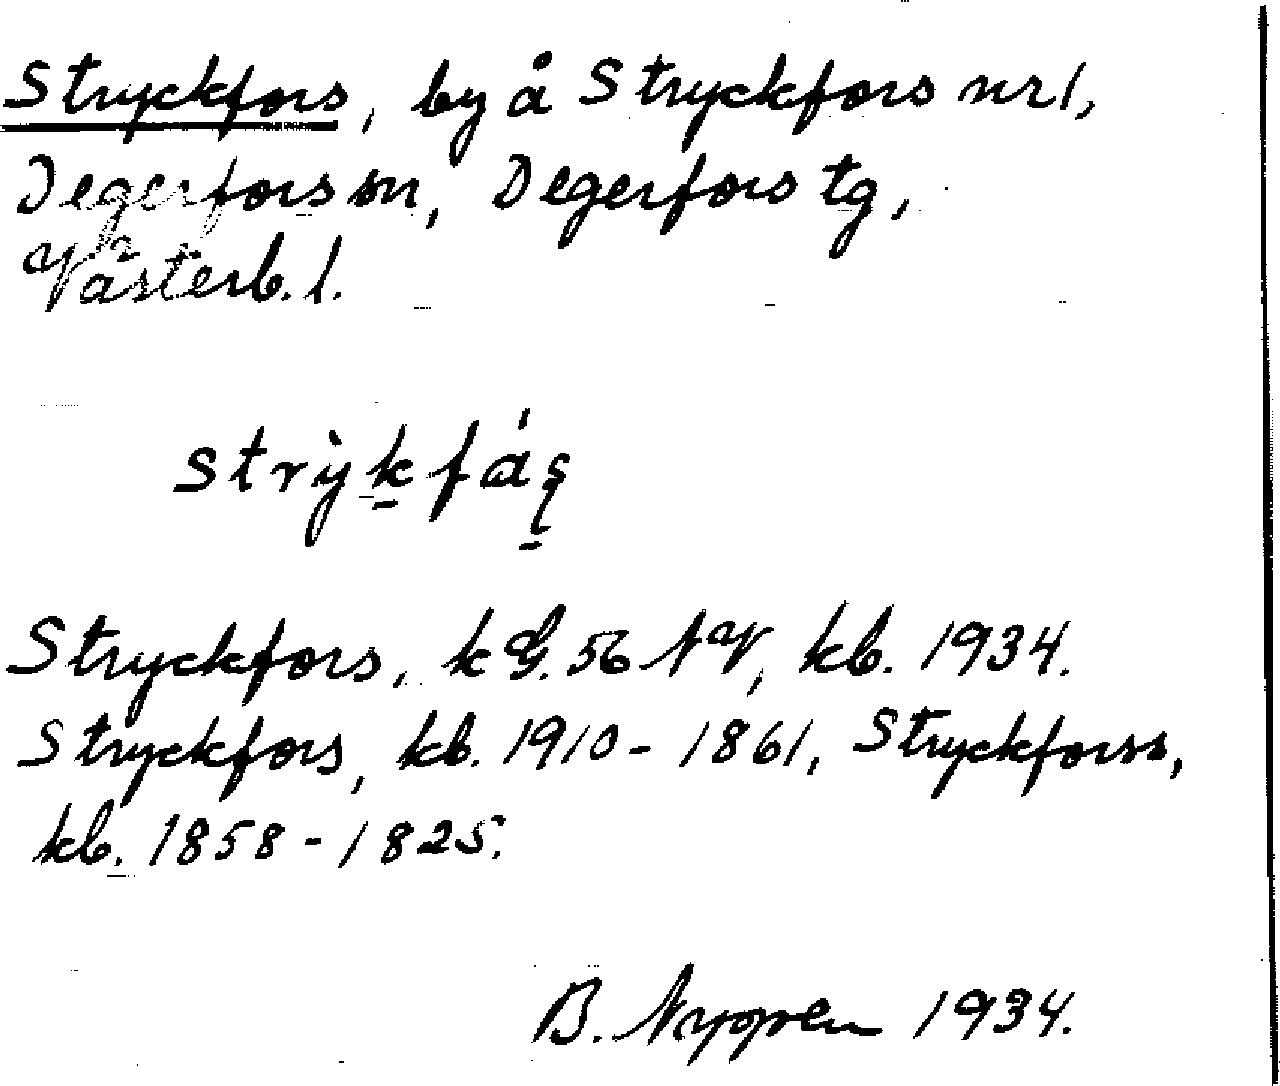 Stryckfors, by å Stryckfors nr 1,
Degerfors sn, Degerfors tg,
Västerb. l.
Stryckfors, k G. 56 NV, kb. 1934.
Stryckfors, kb. 1910-1861, Stryckforss,
kb. 1858-1825.
B. Nygren 1934.